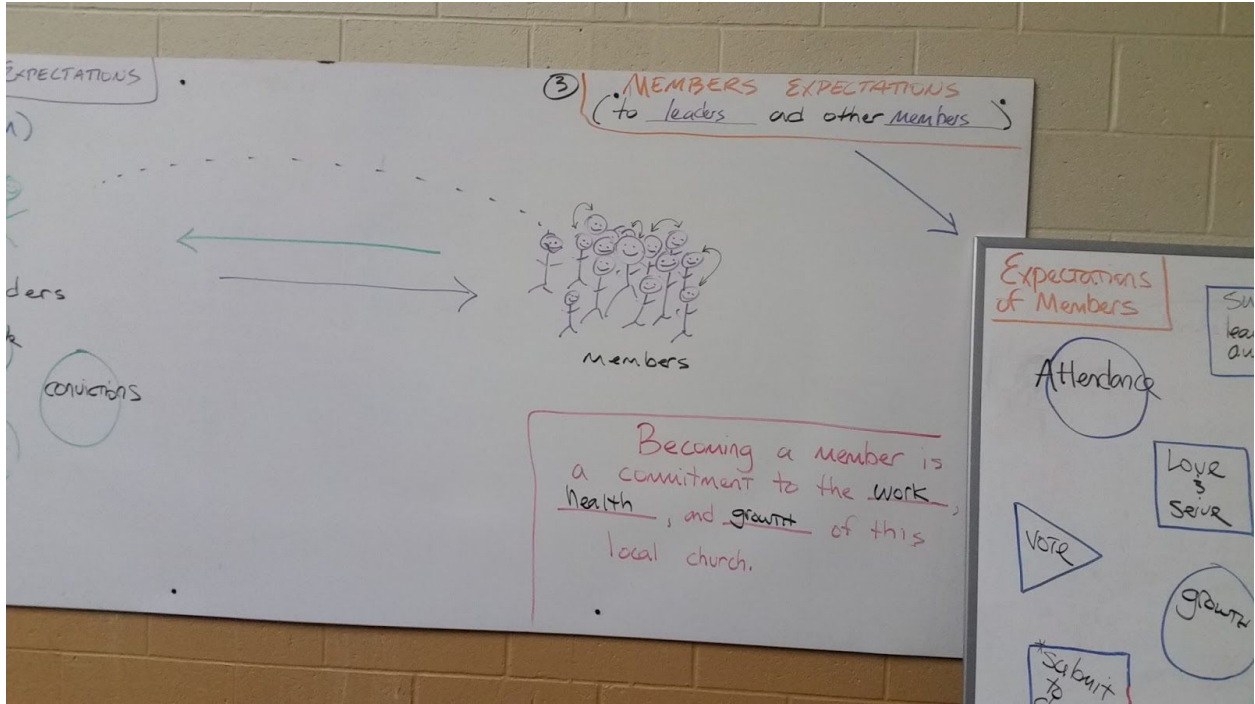 EXPECTATIONS
③ MEMBERS EXPECTATIONS
(to leaders and other members)
ders
convictions
members
Becoming a member is
a commitment to the work,
health, and growth of this
local church.
Expectations
of Members
Attendance
Love
&
Serve
Vote
growth
*Submit
to